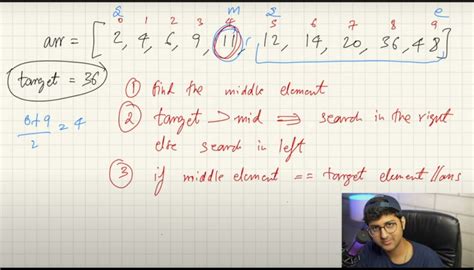 s m s e
0 1 2 3 4 5 6 7 8 9
arr = [2, 4, 6, 9, 11, 12, 14, 20, 36, 48]
target = 36
0+9 = 4
2
① find the middle element
② target > mid ⟹ search in the right
else search in left
③ if middle element == target element // ans